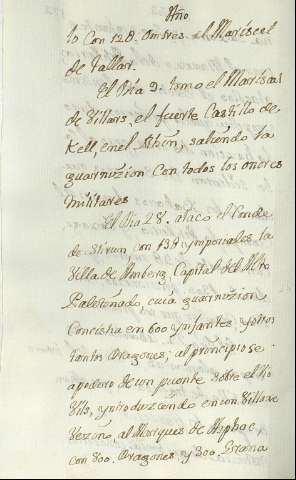 Año
to Con 12θ. Ombres. el Mariscal
de tallar.
El Dia 9. tomo el Mariscal
de Villars, el fuerte Castillo de
Kell, en el Rhin, saliendo la
guarnizion Con todos los onores
militares
El Dia 28. ataco el Conde
de Stirum con ymperiales, la
Villa de Amberg, Capital del Alto
Palatinado, cuia guarnizion,
Concistia en 600 ynfantes y otros
tantos Dragones; al prinçipio se
apodero de un puente sobre el Rio
Vils, yntroduziendo en con
al Marques de
con 800. Dragones y 300. Grana